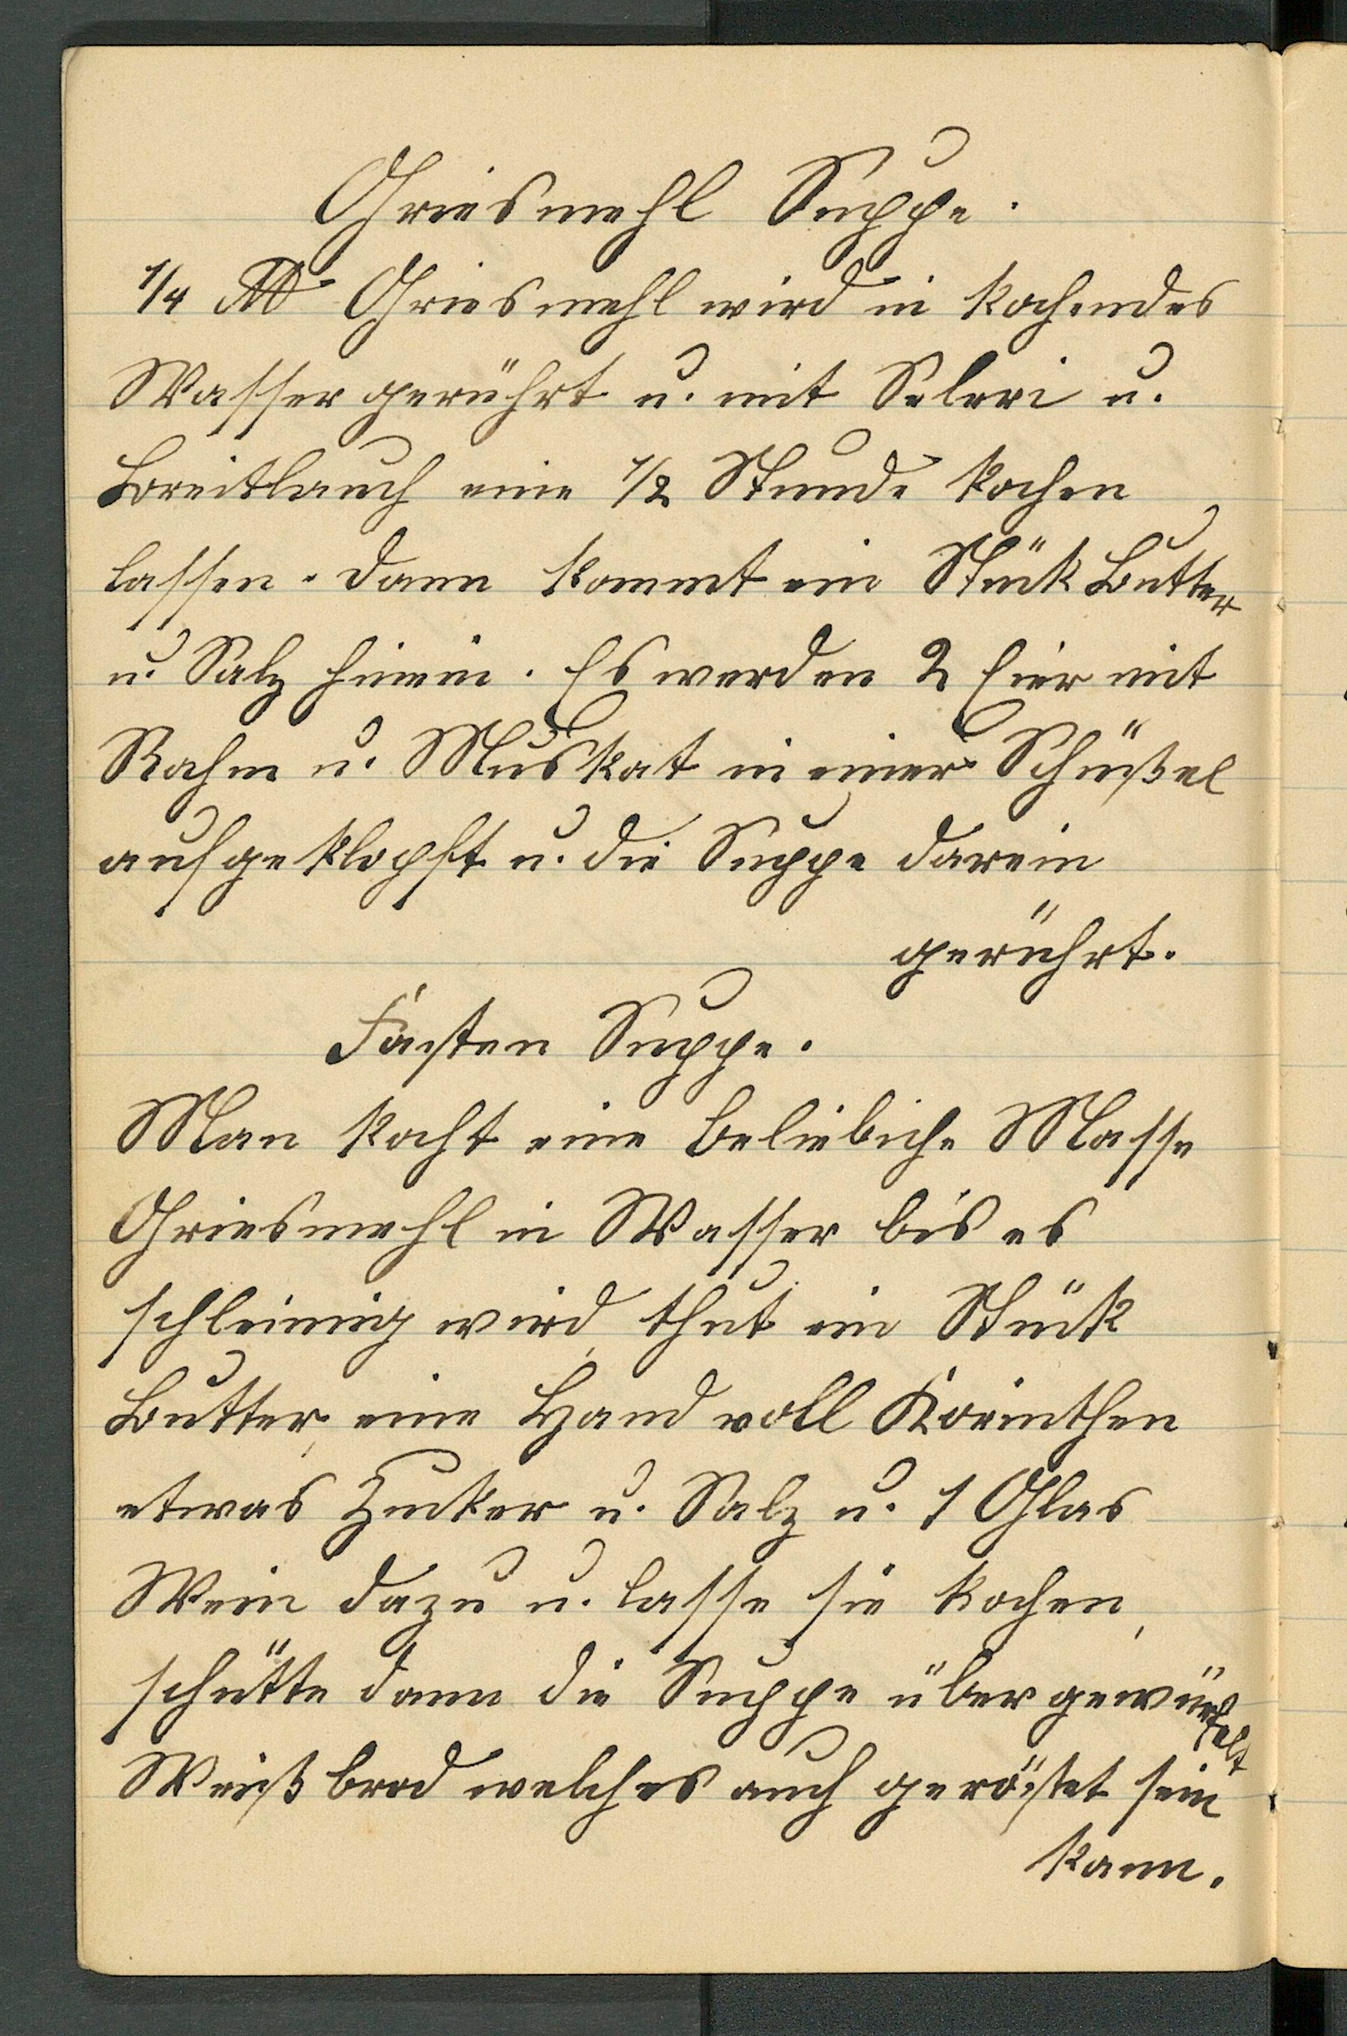 Griesmehl Suppe.
1/4 ℔ Griesmehl wird in kochendes
Wasser gerührt u. mit Seleri u.
Breitlauch eine 1/2 Stunde kochen
lassen. Dann kommt ein Stük Butter
u. Salz hinein. Es werden 2 Eier mit
Rahm u. Muskat in einer Schüßel
aufgeklopft u. die Suppe darein
gerührt.
Fasten Suppe.
Man kocht eine beliebiche Masse
Griesmehl in Wasser bis es
schleimig wird, thut ein Stük
Butter, eine Hand voll Korinthen
etwas Zucker u. Salz u. 1 Glas
Wein dazu u. lasse sie kochen,
schütte dann die Suppe über gewürfelt
Weißbrod welches auch geröstet sein
kann.